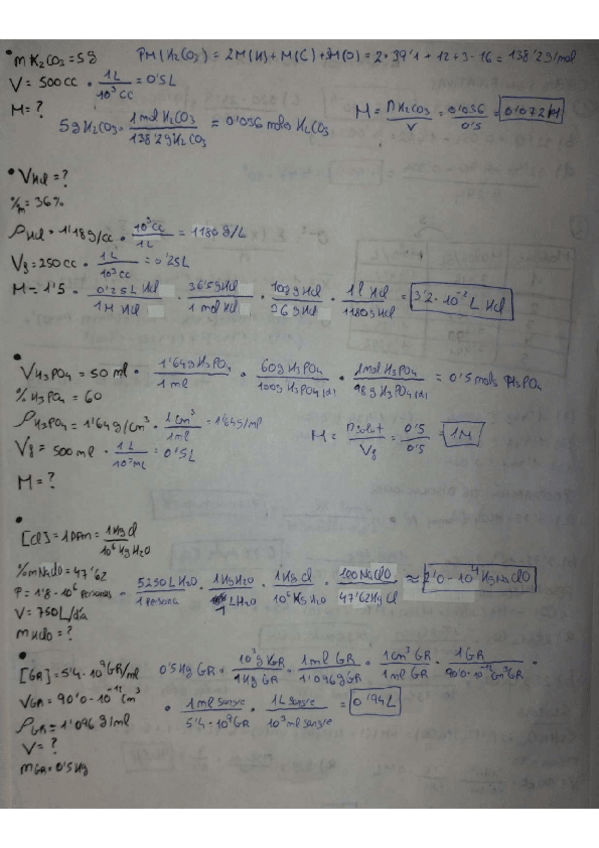 • m K2CO3 = 5g   PM(K2CO3) = 2M(K) + M(C) + 3M(O) = 2 · 39'1 + 12 + 3 · 16 = 138'2 g/mol
V = 500 cc · 1L / 10³ cc = 0'5 L
M = ?
5g K2CO3 · 1 mol K2CO3 / 138'2 g K2CO3 = 0'036 moles K2CO3   M = n K2CO3 / V = 0'036 / 0'5 = 0'072 M
• V HCl = ?
%m = 36%
ρ HCl = 1'18 g/cc · 10³ cc / 1L = 1180 g/L
Vg = 250 cc · 1L / 10³ cc = 0'25 L
M = 1'5 · 0'25 L HCl / 1 M HCl · 36'5 g HCl / 1 mol HCl · 100 g HCl / 36 g HCl · 1 l HCl / 1180 g HCl = 3'2 · 10⁻² L HCl
• V H3PO4 = 50 ml · 1'64 g H3PO4 / 1 ml · 60 g H3PO4 / 100 g H3PO4 (d) · 1 mol H3PO4 / 98 g H3PO4 (d) = 0'5 moles H3PO4
% H3PO4 = 60
ρ H3PO4 = 1'64 g/cm³ · 1 cm³ / 1 ml = 1'64 g/ml
Vg = 500 ml · 1 L / 10³ ml = 0'5 L   M = n solut / Vg = 0'5 / 0'5 = 1M
M = ?
• [Cl] = 1 ppm = 1 Kg Cl / 10⁶ Kg H2O
% m NaClO = 47'62
P = 1'8 · 10⁶ Personas – L H2O / 1 Persona · 1 Kg H2O / 1 L H2O · 1 Kg Cl / 10⁶ Kg H2O · 100 NaClO / 47'62 Kg Cl ≈ 2'0 · 10⁴ Kg NaClO
V = 750 L/día
= ?
• [GR] = 5'4 · 10⁹ GR/ml   0'5 Kg GR · 10³ g GR / 1 Kg GR · 1 ml GR / 1'096 g GR · 1 cm³ GR / 1 ml GR · 1 GR / 90'0 · 10⁻¹² cm³ GR ·
V GR = 90'0 · 10⁻¹² cm³
ρ GR = 1'096 g/ml   · 1 ml sangre / 5'4 · 10⁹ GR · 1 L sangre / 10³ ml sangre = 0'94 L
V = ?
m GR = 0'5 Kg